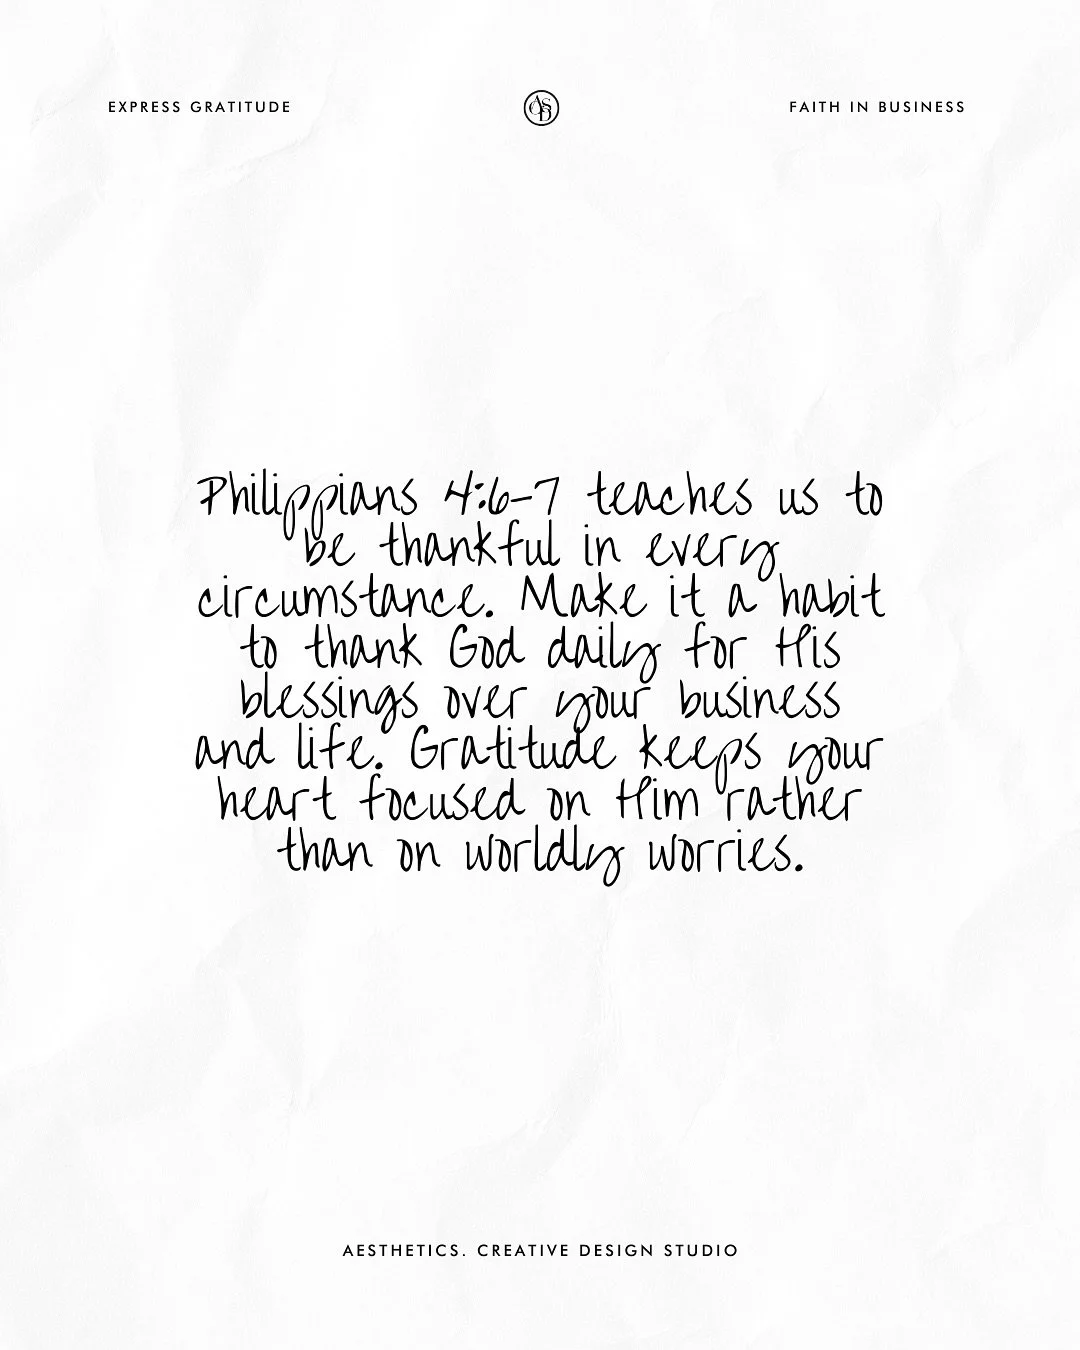 EXPRESS GRATITUDE
ASD
FAITH IN BUSINESS
Philippians 4:6-7 teaches us to
be thankful in every
circumstance. Make it a habit
to thank God daily for His
blessings over your business
and life. Gratitude keeps your
heart focused on Him rather
than on worldly worries.
AESTHETICS. CREATIVE DESIGN STUDIO